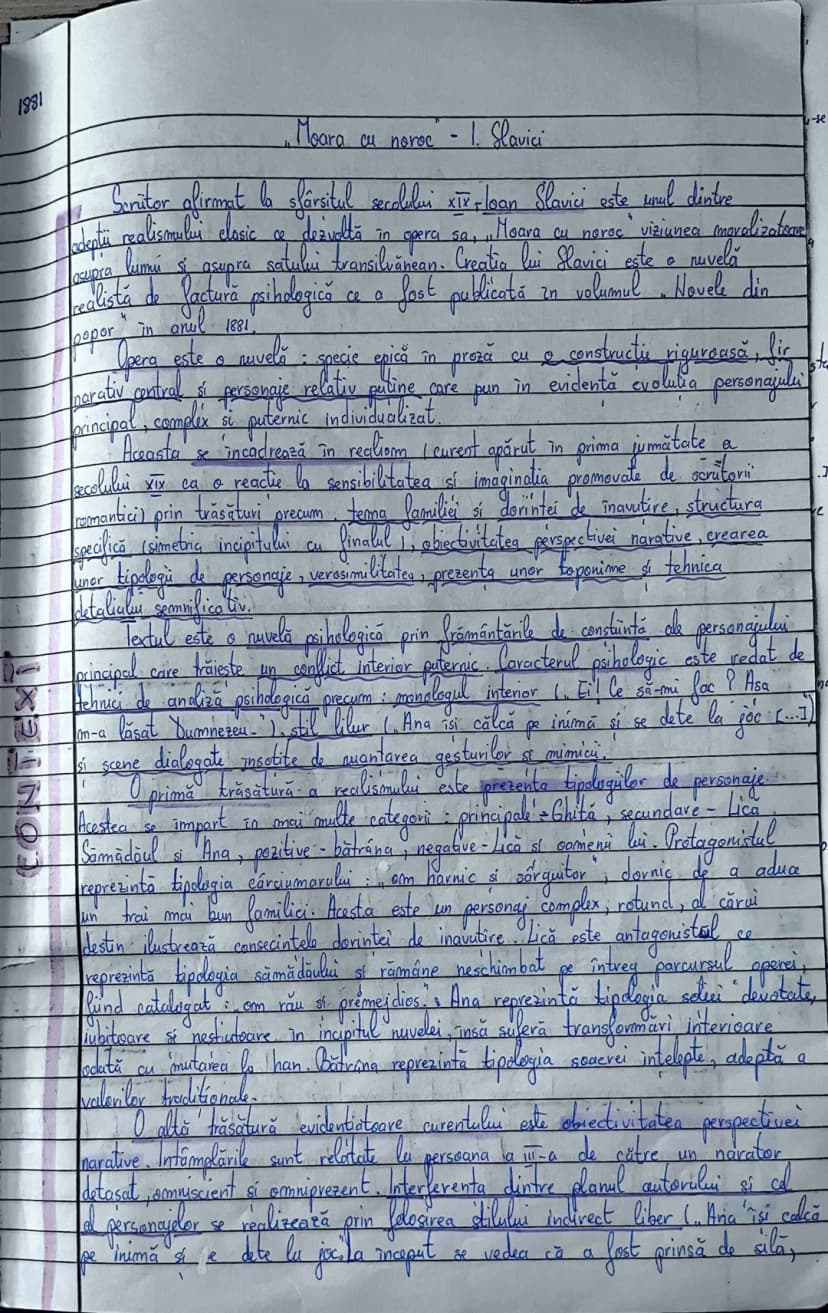 1881
„Moara cu noroc" - I. Slavici
Scriitor afirmat la sfârsitul secolului XIX, Ioan Slavici este unul dintre
adeptii realismului clasic ce dezvoltă în opera sa, „Moara cu noroc" viziunea moralizatoare
asupra lumii si asupra satului transilvănean. Creatia lui Slavici este o nuvelă
realistă de factură psihologică ce a fost publicată în volumul „Novele din
popor" în anul 1881.
Opera este o nuvelă: specie epică în proză cu o constructie riguroasă, fir
narativ central si personaje relativ putine care pun in evidentă evolutia personajului
principal, complex si puternic individualizat.
Aceasta se încadrează în realism (curent apărut în prima jumătate a
secolului XIX ca o reactie la sensibilitatea si imaginatia promovate de scriitorii
romantici) prin trăsături precum: tema familiei si dorintei de inavutire, structura
specifică (simetria incipitului cu finalul), obiectivitatea perspectivei narative, crearea
unor tipologii de personaje, verosimilitatea, prezenta unor toponime si tehnica
detaliului semnificativ.
Textul este o nuvelă psihologică prin frământările de constiintă ale personajului
principal care trăieste un conflict interior puternic. Caracterul psihologic este redat de
tehnici de analiză psihologică precum: monologul interior („Ei! Ce să-mi fac? Asa
m-a lăsat Dumnezeu."), stil liber („Ana isi călcă pe inimă si se dete la joc [...]")
si scene dialogate insotite de nuantarea gesturilor si mimicii.
CONTEXT
O primă trăsătură a realismului este prezenta tipologiilor de personaje.
Acestea se impart in mai multe categorii: principale - Ghită, secundare - Lică
Sămădăul si Ana, pozitive - bătrâna, negative - Lică si oamenii lui. Protagonistul
reprezintă tipologia cârciumarului: „om harnic si sârguitor", dornic de a aduce
un trai mai bun familiei. Acesta este un personaj complex, rotund, al cărui
destin ilustrează consecintele dorintei de inavutire. Lică este antagonistul ce
reprezintă tipologia sămădăului si rămâne neschimbat pe întreg parcursul operei,
fiind catalogat: „om rău si primejdios". Ana reprezintă tipologia sotiei devotate,
iubitoare si nestiutoare in incipitul nuvelei, insă suferă transformări interioare
odată cu mutarea la han. Bătrâna reprezintă tipologia soacrei intelepte, adeptă a
valorilor traditionale.
O altă trăsătură evidentiatoare curentului este obiectivitatea perspectivei
narative. Intâmplările sunt relatate la persoana a III-a de către un narator
detasat, omniscient si omniprezent. Interferenta dintre planul autorului si cel
al personajelor se realizează prin folosirea stilului indirect liber („Ana îsi calcă
pe inimă si e dete la joc. La inceput se vedea că a fost prinsă de silă,